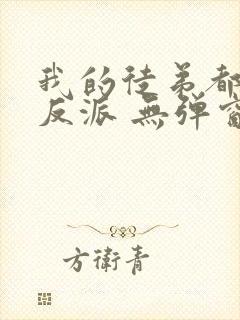 我的徒弟都
反派 無彈窗
方衛青